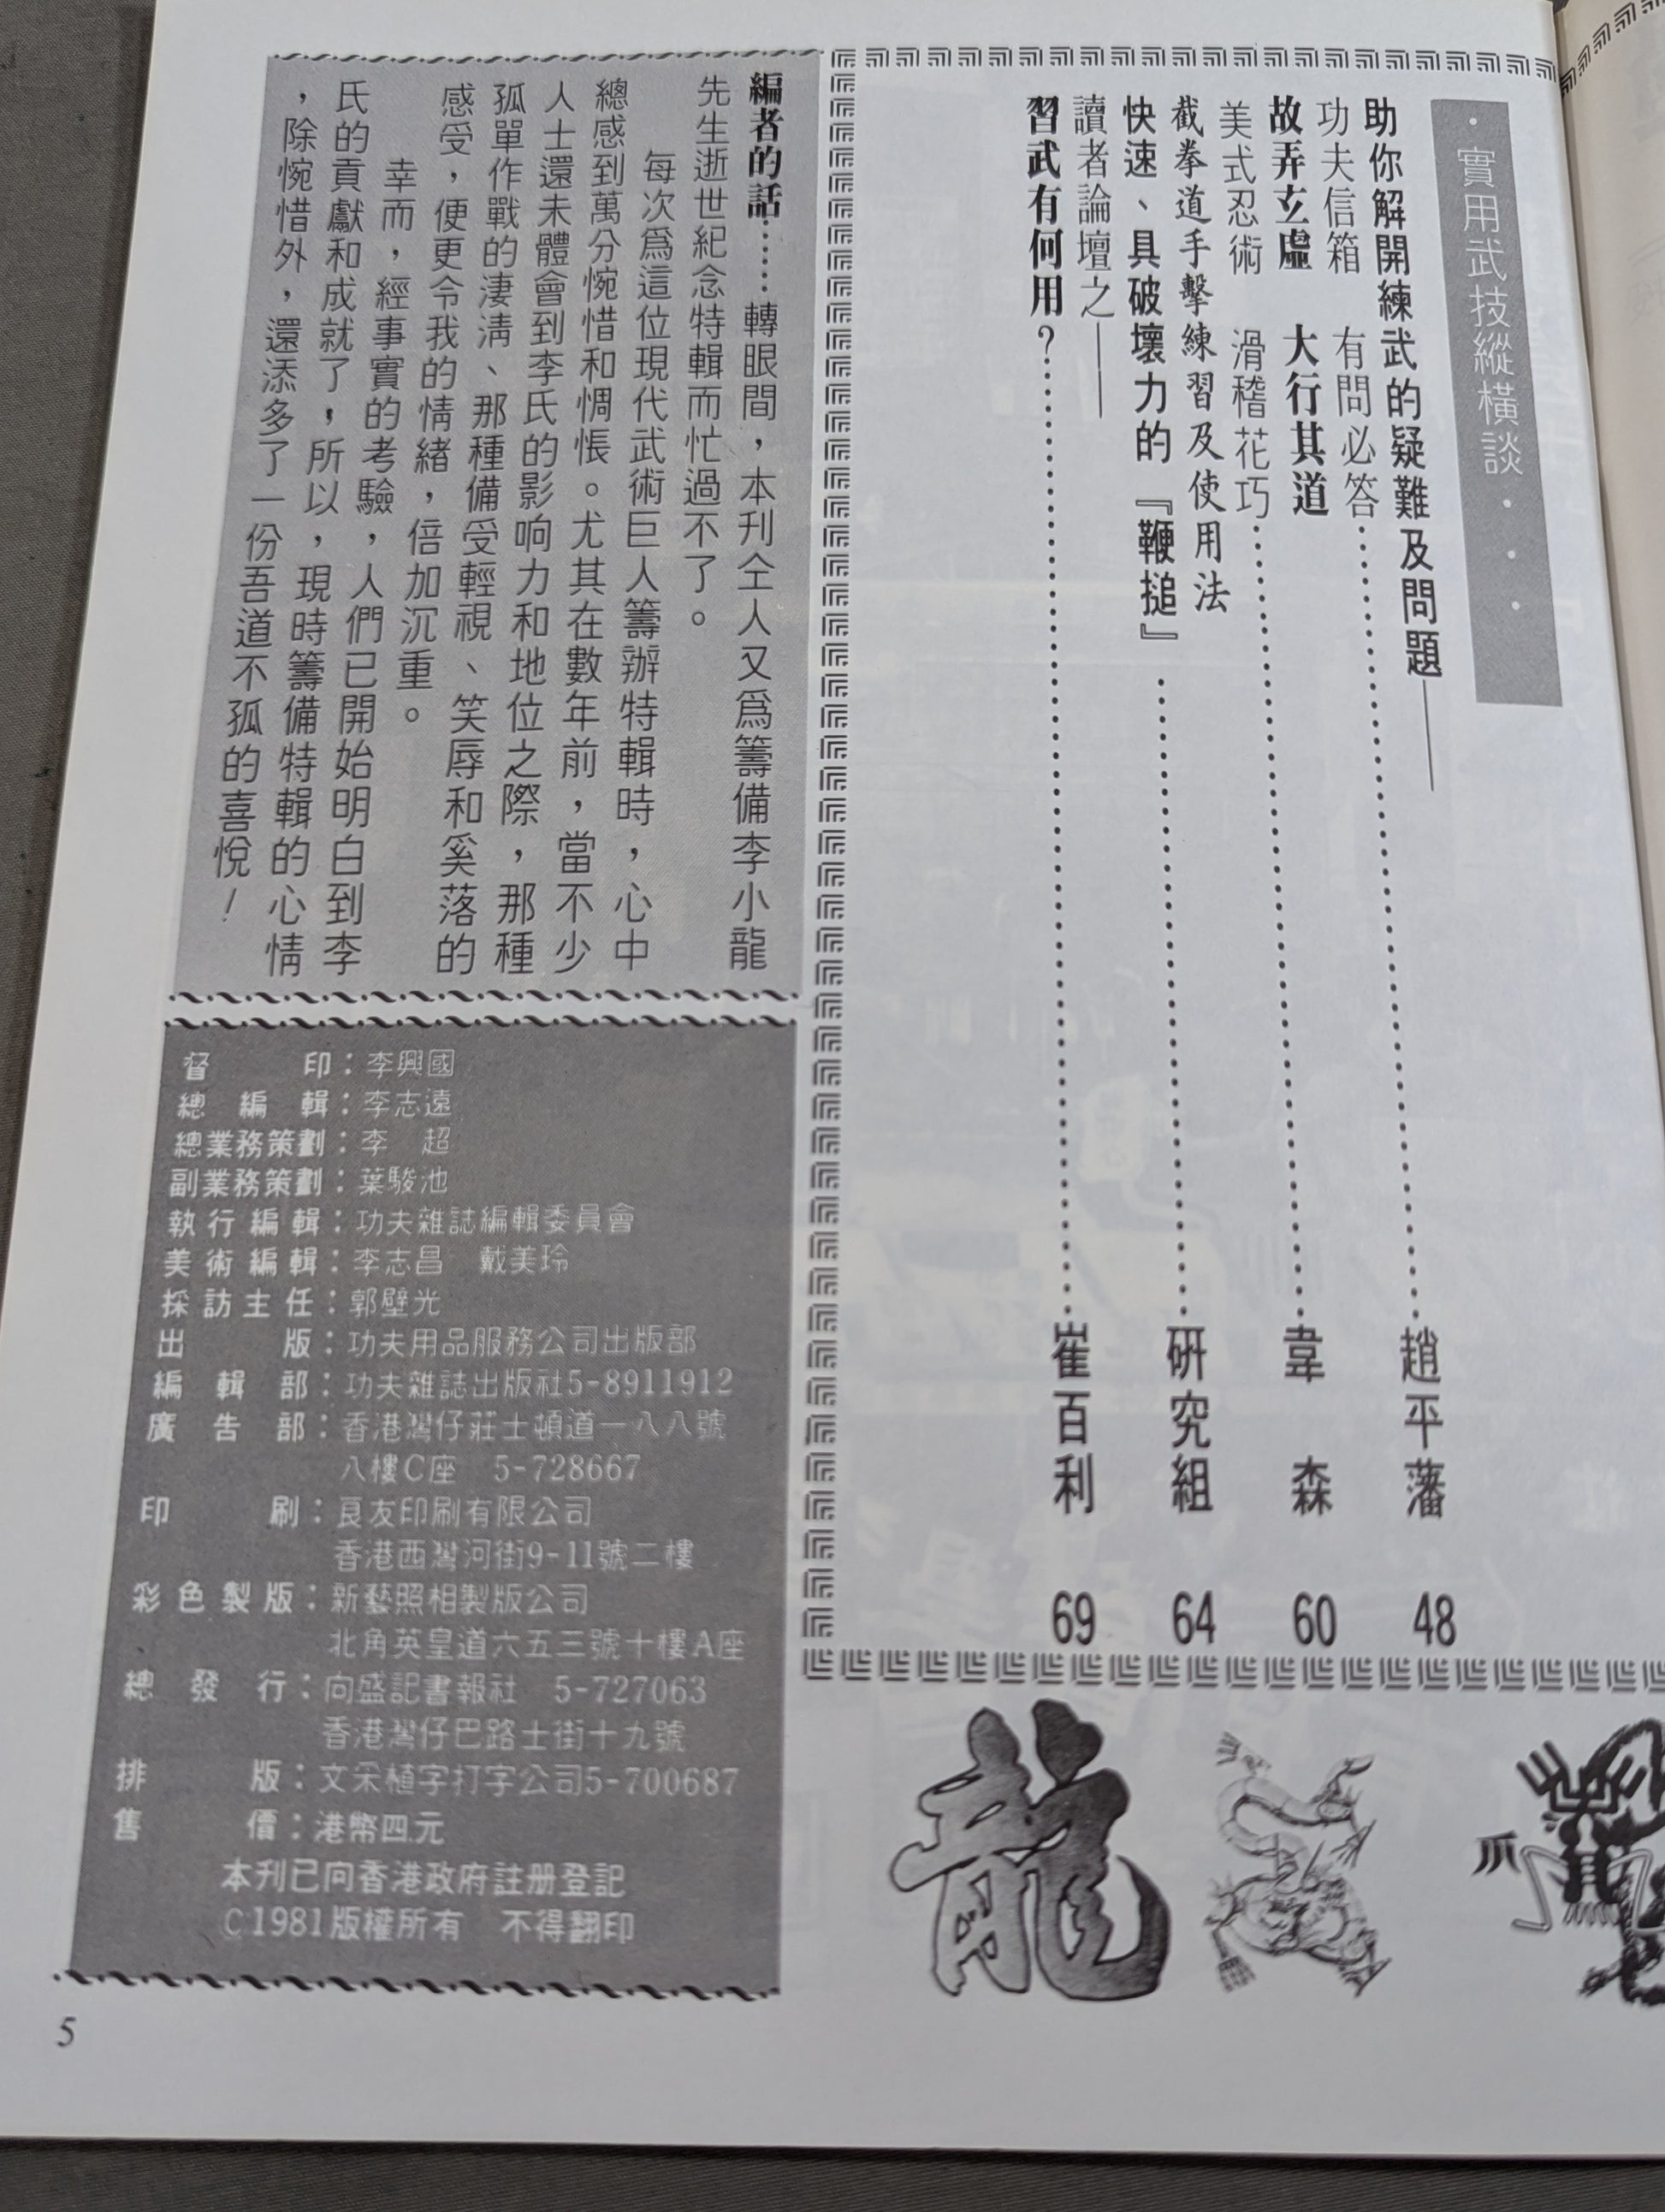 ·實用武技縱橫談···
助你解開練武的疑難及問題——
功夫信箱 有問必答……趙平藩 48
故弄玄虛 大行其道
美式忍術 滑稽花巧……韋 森 60
截拳道手擊練習及使用法
快速、具破壞力的『鞭搥』……研究組 64
讀者論壇之——
習武有何用?……崔百利 69
編者的話……轉眼間,本刊仝人又爲籌備李小龍
先生逝世紀念特輯而忙過不了。
每次爲這位現代武術巨人籌辦特輯時,心中
總感到萬分惋惜和惆悵。尤其在數年前,當不少
人士還未體會到李氏的影响力和地位之際,那種
孤單作戰的淒淸、那種備受輕視、笑辱和奚落的
感受,便更令我的情緒,倍加沉重。
幸而,經事實的考驗,人們已開始明白到李
氏的貢獻和成就了,所以,現時籌備特輯的心情
,除惋惜外,還添多了一份吾道不孤的喜悅!
督印:李興國
總編輯:李志遠
總業務策劃:李 超
副業務策劃:葉駿池
執行編輯:功夫雜誌編輯委員會
美術編輯:李志昌 戴美玲
採訪主任:郭壁光
出版:功夫用品服務公司出版部
編輯部:功夫雜誌出版社5-8911912
廣告部:香港灣仔莊士頓道一八八號
八樓C座 5-728667
印刷:良友印刷有限公司
香港西灣河街9-11號二樓
彩色製版:新藝照相製版公司
北角英皇道六五三號十樓A座
總發行:向盛記書報社 5-727063
香港灣仔巴路士街十九號
排版:文采植字打字公司5-700687
售價:港幣四元
本刊已向香港政府註册登記
©1981版權所有 不得翻印
龍
爪
5